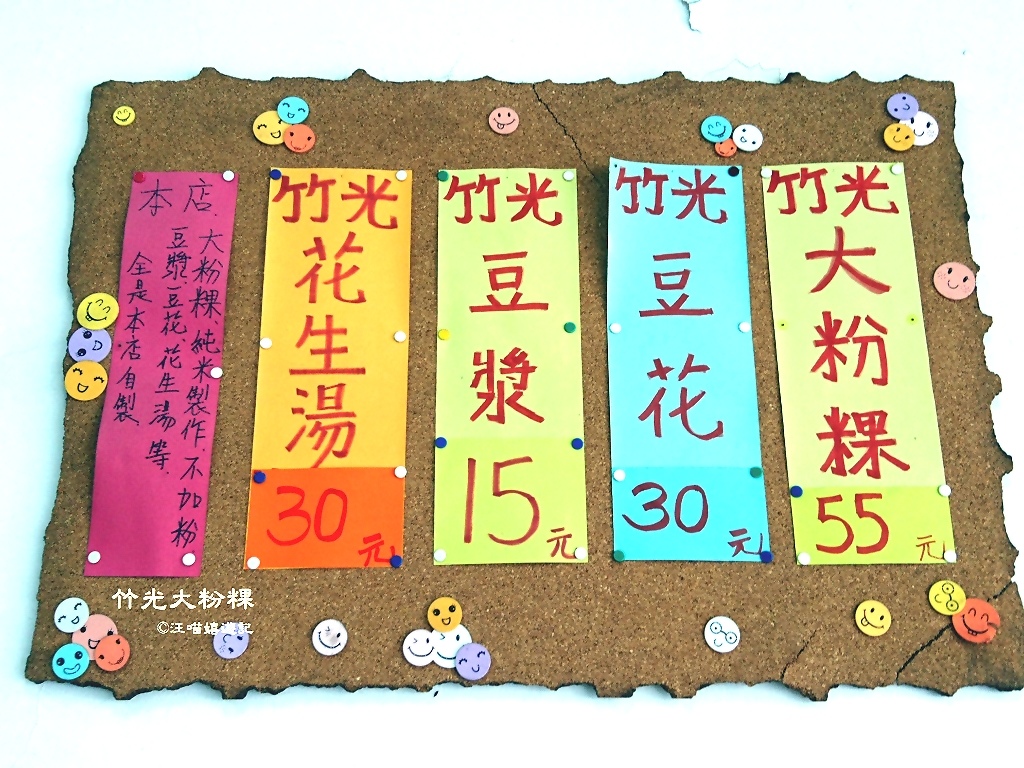 竹光
大粉粿
55元
竹光
豆花
30元
竹光
豆漿
15元
竹光
花生湯
30元
本店
大粉粿 純米製作.不加粉
豆漿.豆花.花生湯等.
全是本店自製.
竹光大粉粿
©汪喵嬉遊記